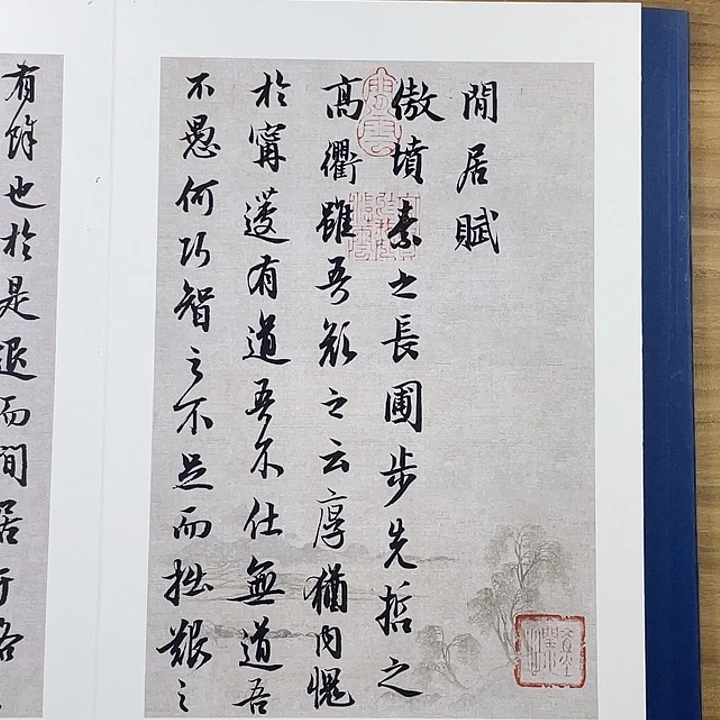 閒居賦
傲墳素之長圃步先哲之
高衢雖吾顏之云厚猶內愧
於甯蘧有道吾不仕無道吾
不愚何巧智之不足而拙艱之
有餘也於是退而閒居于洛